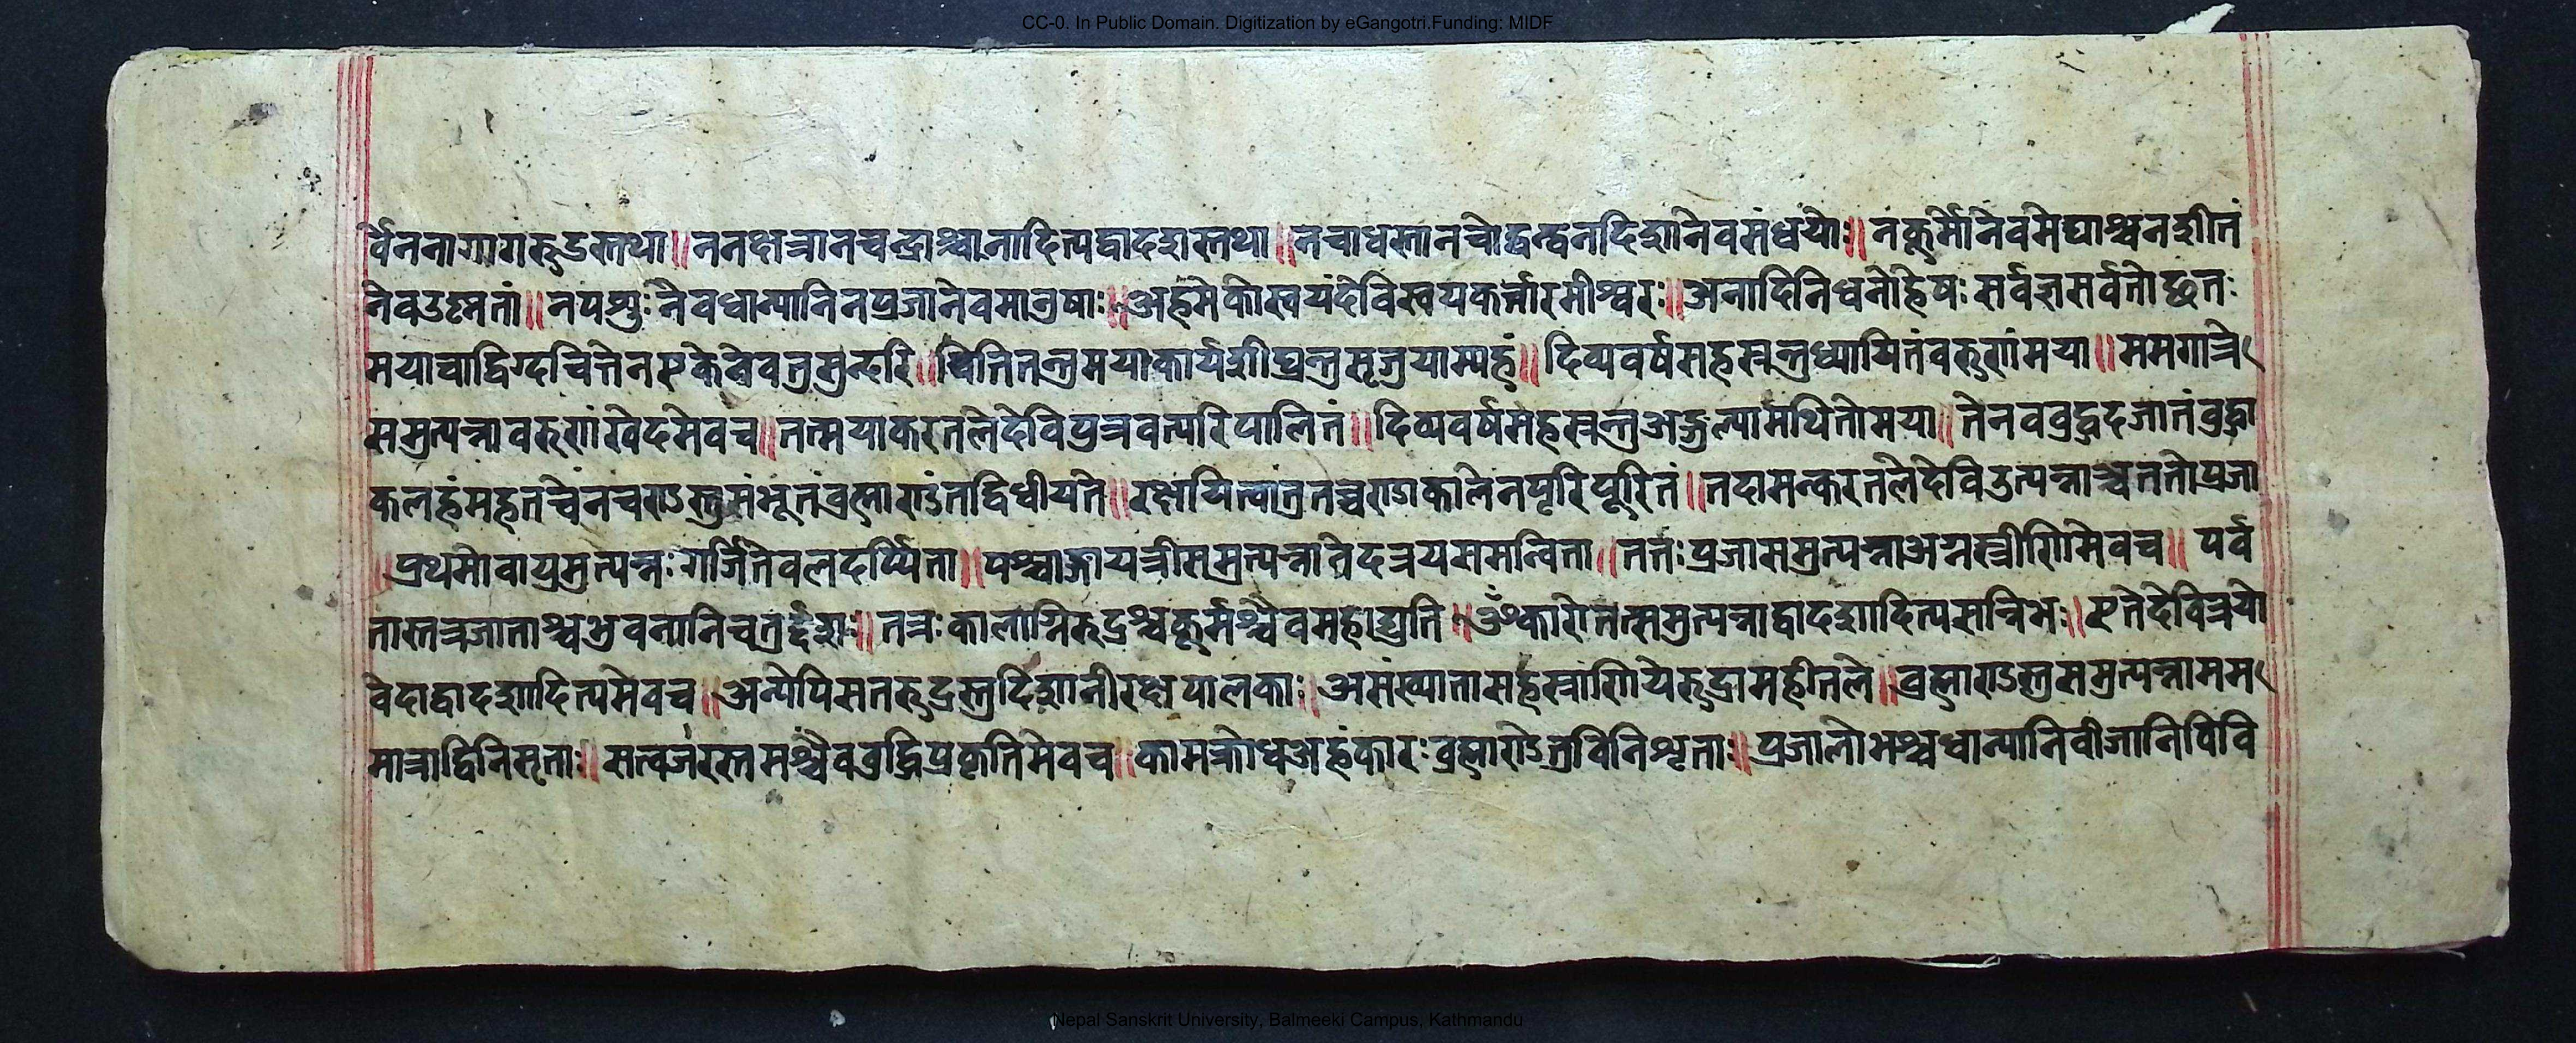 CC-0. In Public Domain. Digitization by eGangotri.Funding: MIDF
र्वेननागागरुडस्तथा॥ननक्षत्रानचन्द्राश्चानादित्यद्वादशस्तथा॥नचाधस्तानचोर्द्धन्त्वनदिशानैवसंध्ययोः॥नकूर्मोनैवमेघाश्चनशीतं
नैवउष्नतां॥नपशुःनैवधान्यानिनप्रजानैवमानुषाः॥अहमेकोस्वयंदेविस्वयकर्त्तारमीश्वरः॥अनादिनिधनोह्येषःसर्वज्ञसर्वतोच्छ्रतः
मयाचाद्विग्दचित्तेनएकेनैवतुसुन्दरि॥चिंतितन्तुमयाकार्यशीघ्रन्तुसृजयाम्यहं॥दिव्यवर्षसहस्रन्तुध्यायितंवरुणंमया॥ममगात्रे
समुत्पन्नावरुणंखेदमेवच॥तत्मयाकरतलेदेविपुत्रवत्परिपालितं॥दिव्यवर्षसहस्रन्तुअङ्गुल्यामथितोमया॥तेनवबुद्बुदजातंबुद्बुदा
कलहंमहतचैनचराऽस्तुसंभूतंब्रह्माराऽंतद्विधीयते॥रक्षायित्वातुतच्चराऽकालेनपृरिपूरितं॥तदामत्करतलेदेविउत्पन्नाञ्चततोप्रजा
॥प्रथमोवायुमुत्पन्नःगर्जितेवलदर्प्पिता॥पश्चाङ्गायत्रीसमुत्पन्नावेदत्रयसमन्विता॥ततःप्रजासमुत्पन्नाअग्नस्त्रीणिमेवच॥पर्व
तास्तत्रजाताश्चभुवनानिचतुर्द्दशः॥तत्रःकालाग्निरुद्रश्चकूर्मश्चैवमहाद्युति॥ॐकारोतत्समुत्पन्नाद्वादशादित्यसन्निभः॥एतेदेवित्रयो
वेदाद्वादशादित्यमेवच॥अन्येपिसतरुद्रस्तुदिशानीरक्षपालकाः॥असंख्यातासहस्राणियेरुद्रामहीतले॥ब्रह्माराऽस्तुसमुत्पन्नामम
मात्राद्विनिसृताः॥सत्वजरस्तमश्चैवबुद्धिप्रकृतिमेवच॥कामक्रोधअहंकारःब्रह्माराेऽतुविनिशृताः॥प्रजालोभश्चधान्यानिवीजानिविवि
Nepal Sanskrit University, Balmeeki Campus, Kathmandu